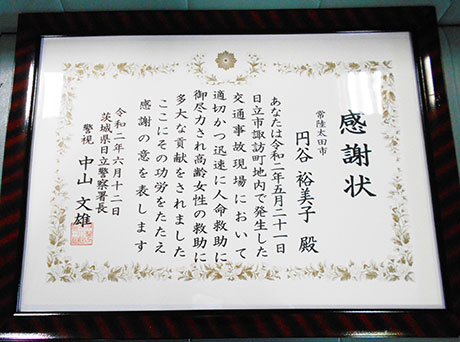 感謝状
常陸太田市
円谷 裕美子 殿
あなたは令和二年五月二十一日
日立市諏訪町地内で発生した
交通事故現場において
適切かつ迅速に人命救助に
御尽力され高齢女性の救助に
多大な貢献をされました
ここにその功労をたたえ
感謝の意を表します
令和二年六月十二日
茨城県日立警察署長
警視 中山 文雄